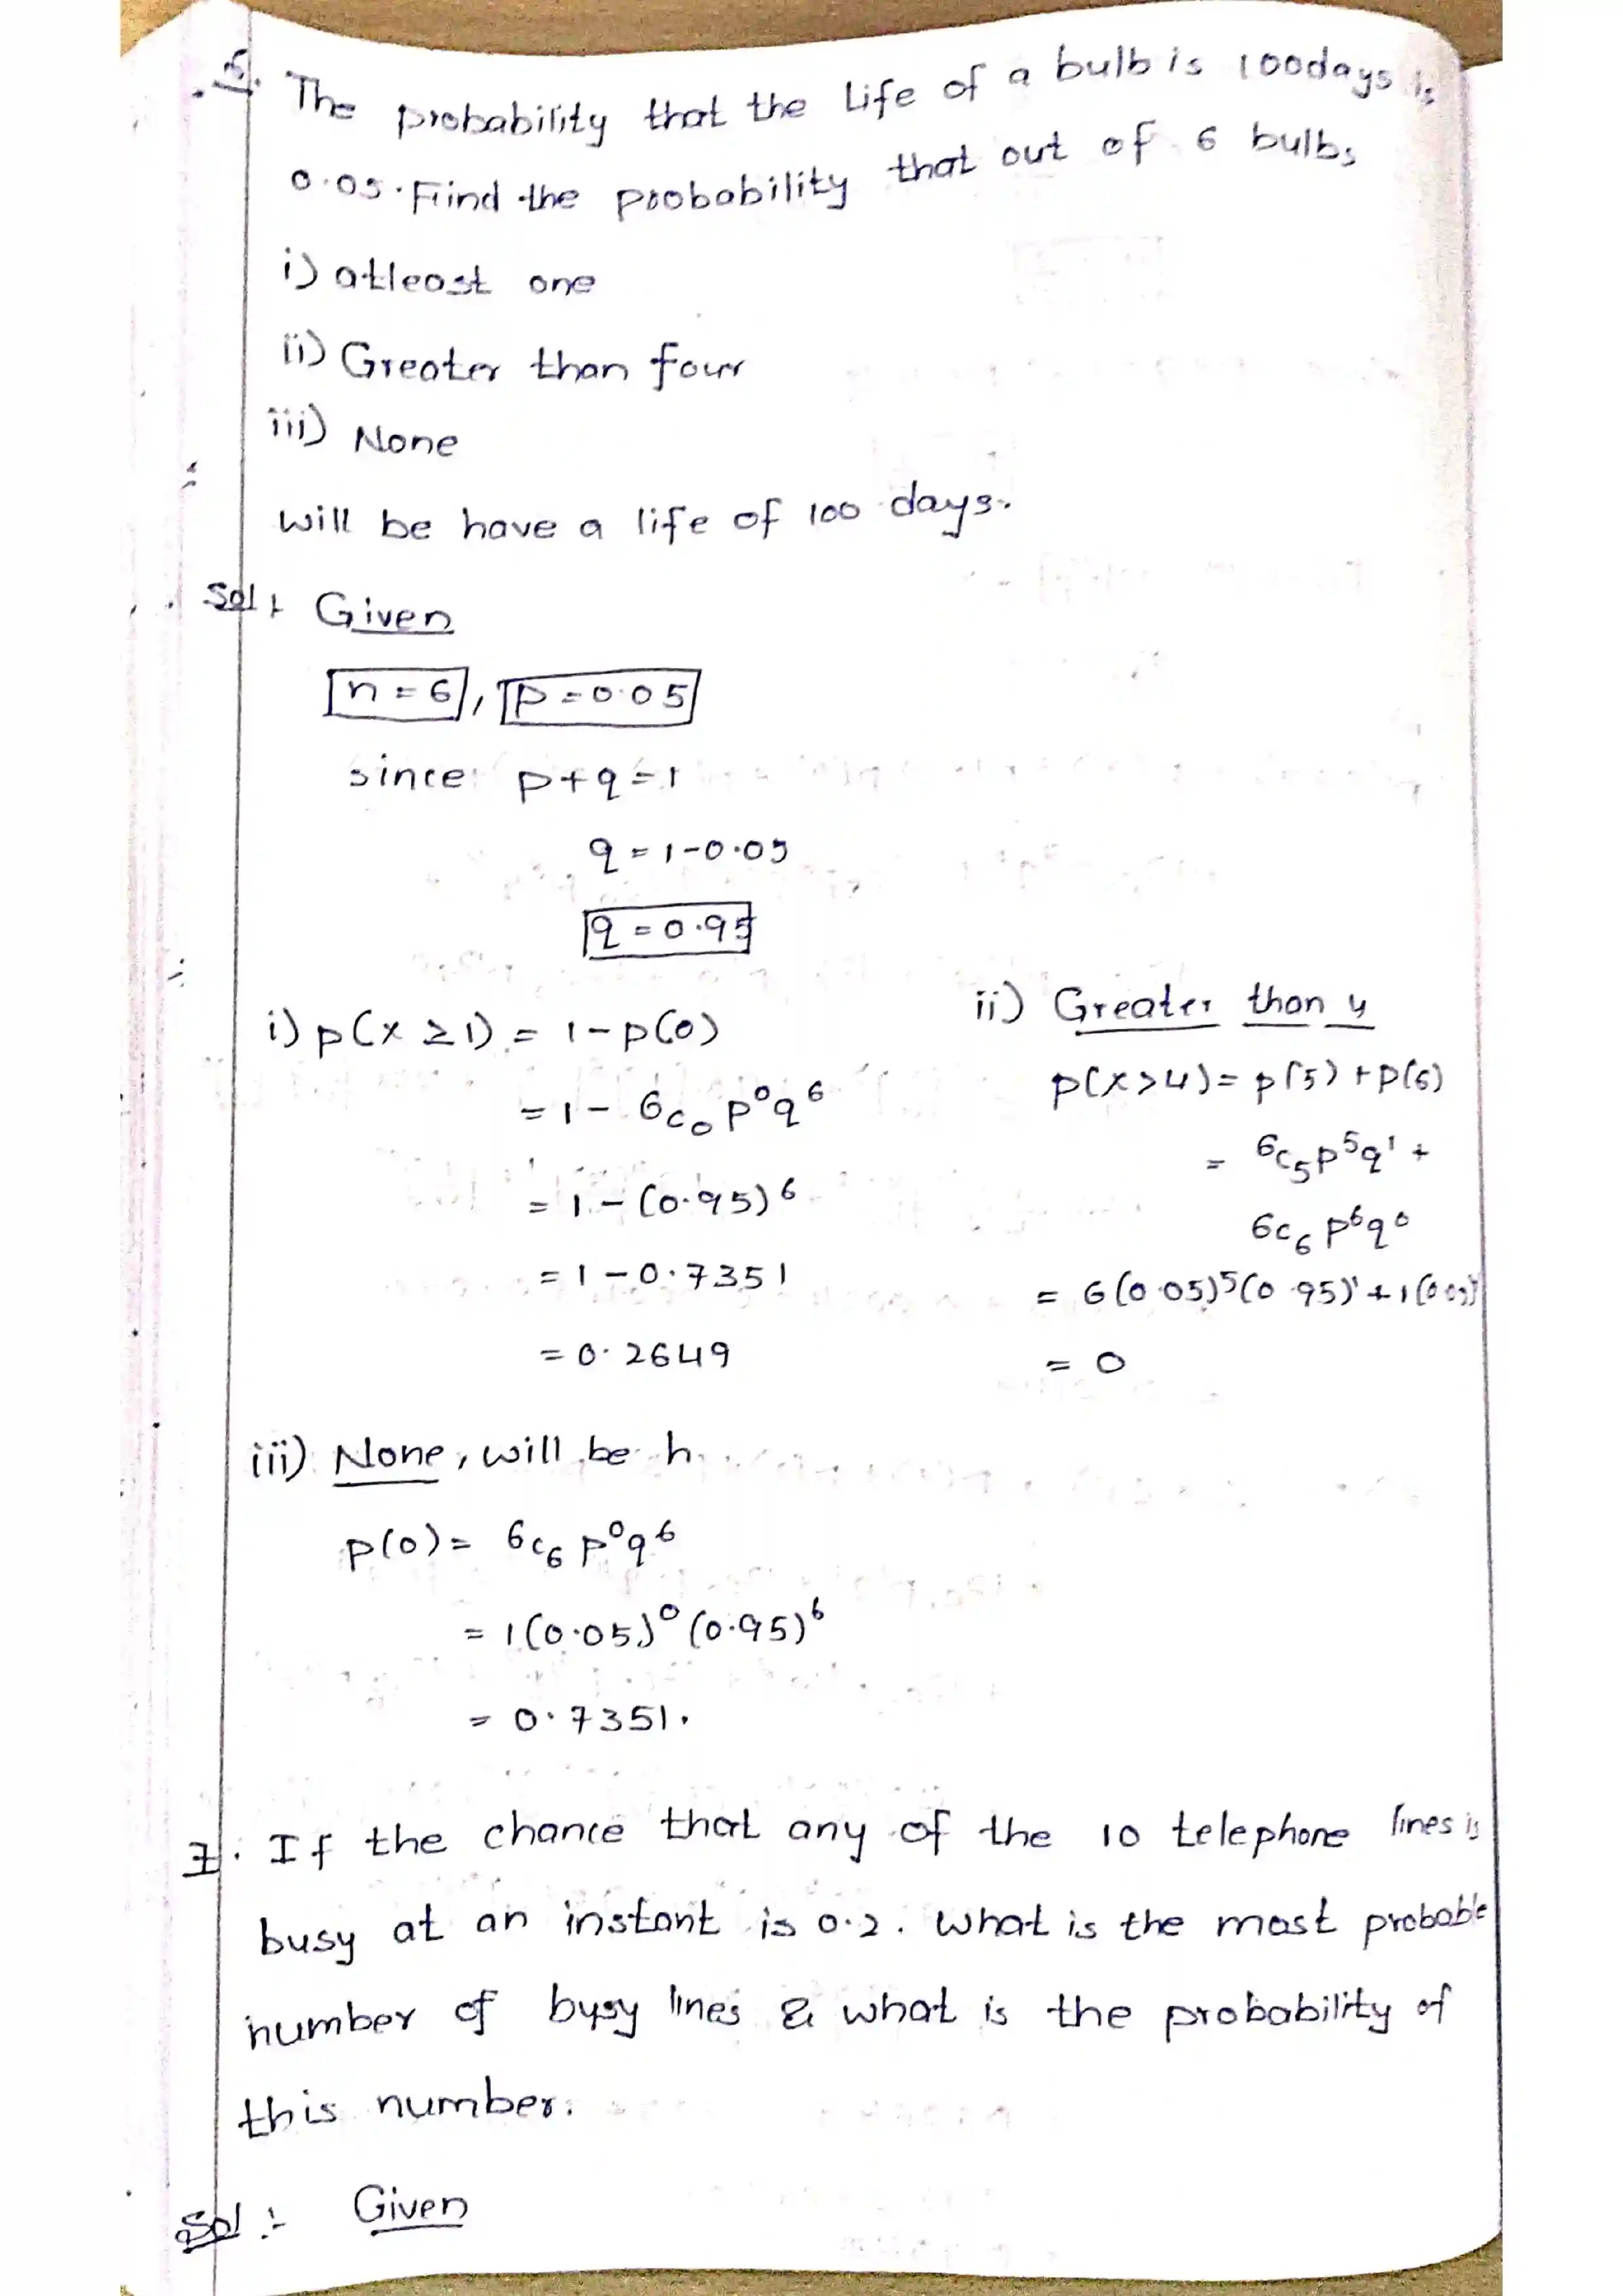 6. The probability that the Life of a bulb is 100days is
0.05. Find the probability that out of 6 bulbs
i) atleast one
ii) Greater than four
iii) None
will be have a life of 100 days.
Sol: Given
n = 6, p = 0.05
since p+q=1
q = 1-0.05
q = 0.95
i) p(x ≥ 1) = 1-p(0)
= 1 - 6c₀ p⁰q⁶
= 1 - (0.95)⁶
= 1 - 0.7351
= 0.2649
ii) Greater than 4
p(x>4) = p(5) + p(6)
= 6c₅p⁵q¹ +
6c₆ p⁶q⁰
= 6(0.05)⁵(0.95)¹ + 1(0.05)
= 0
iii) None, will be h
p(0) = 6c₆ p⁰q⁶
= 1(0.05)⁰ (0.95)⁶
= 0.7351.
7. If the chance that any of the 10 telephone lines is
busy at an instant is 0.2. What is the most probable
number of busy lines & what is the probability of
this number.
Sol :- Given